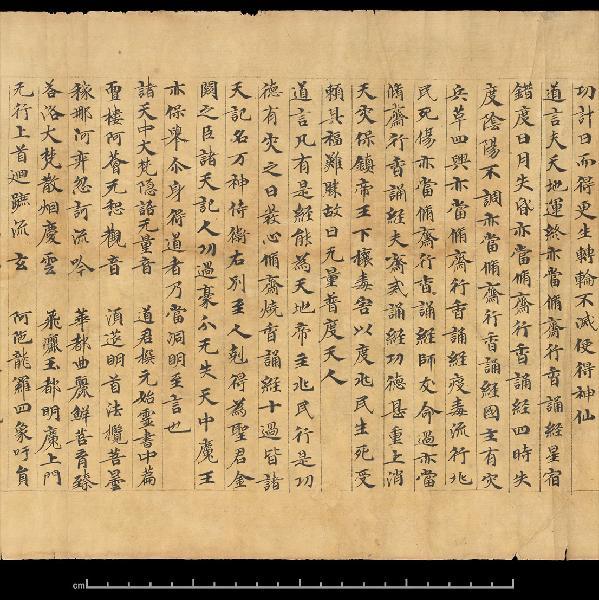 功計日而得更生轉輪不滅便得神仙
道言夫天地運終亦當脩齋行香誦經星宿
錯度日月失昏亦當脩齋行香誦經四時失
度陰陽不調亦當脩齋行香誦經國主有灾
兵革四興亦當脩齋行香誦經疫毒流行兆
民死傷亦當脩齋行香誦經師友命過亦當
脩齋行香誦經夫齋戒誦經功德甚重上消
天灾保鎮帝王下攘毒害以度兆民生死受
賴其福難勝故曰无量普度天人
道言凡有是經能為天地帝主兆民行是功
德有灾之日發心脩齋燒香誦經十過皆諸
天記名万神侍衛右別至人剋得為聖君金
闕之臣諸天記人功過豪分无失天中魔王
亦保舉尒身得道者乃當洞明至言也
諸天中大梵隱語无量音 道君撰元始靈書中篇
亶樓阿薈无惒觀音 湏莛明首法攬菩曇
稼那阿弈忽訶流吟 華都曲麗鮮菩育臻
答洛大梵散烟慶雲 飛灑玉都明魔上門
无行上首迴蹠流玄 阿陁龍羅四象吁員
cm